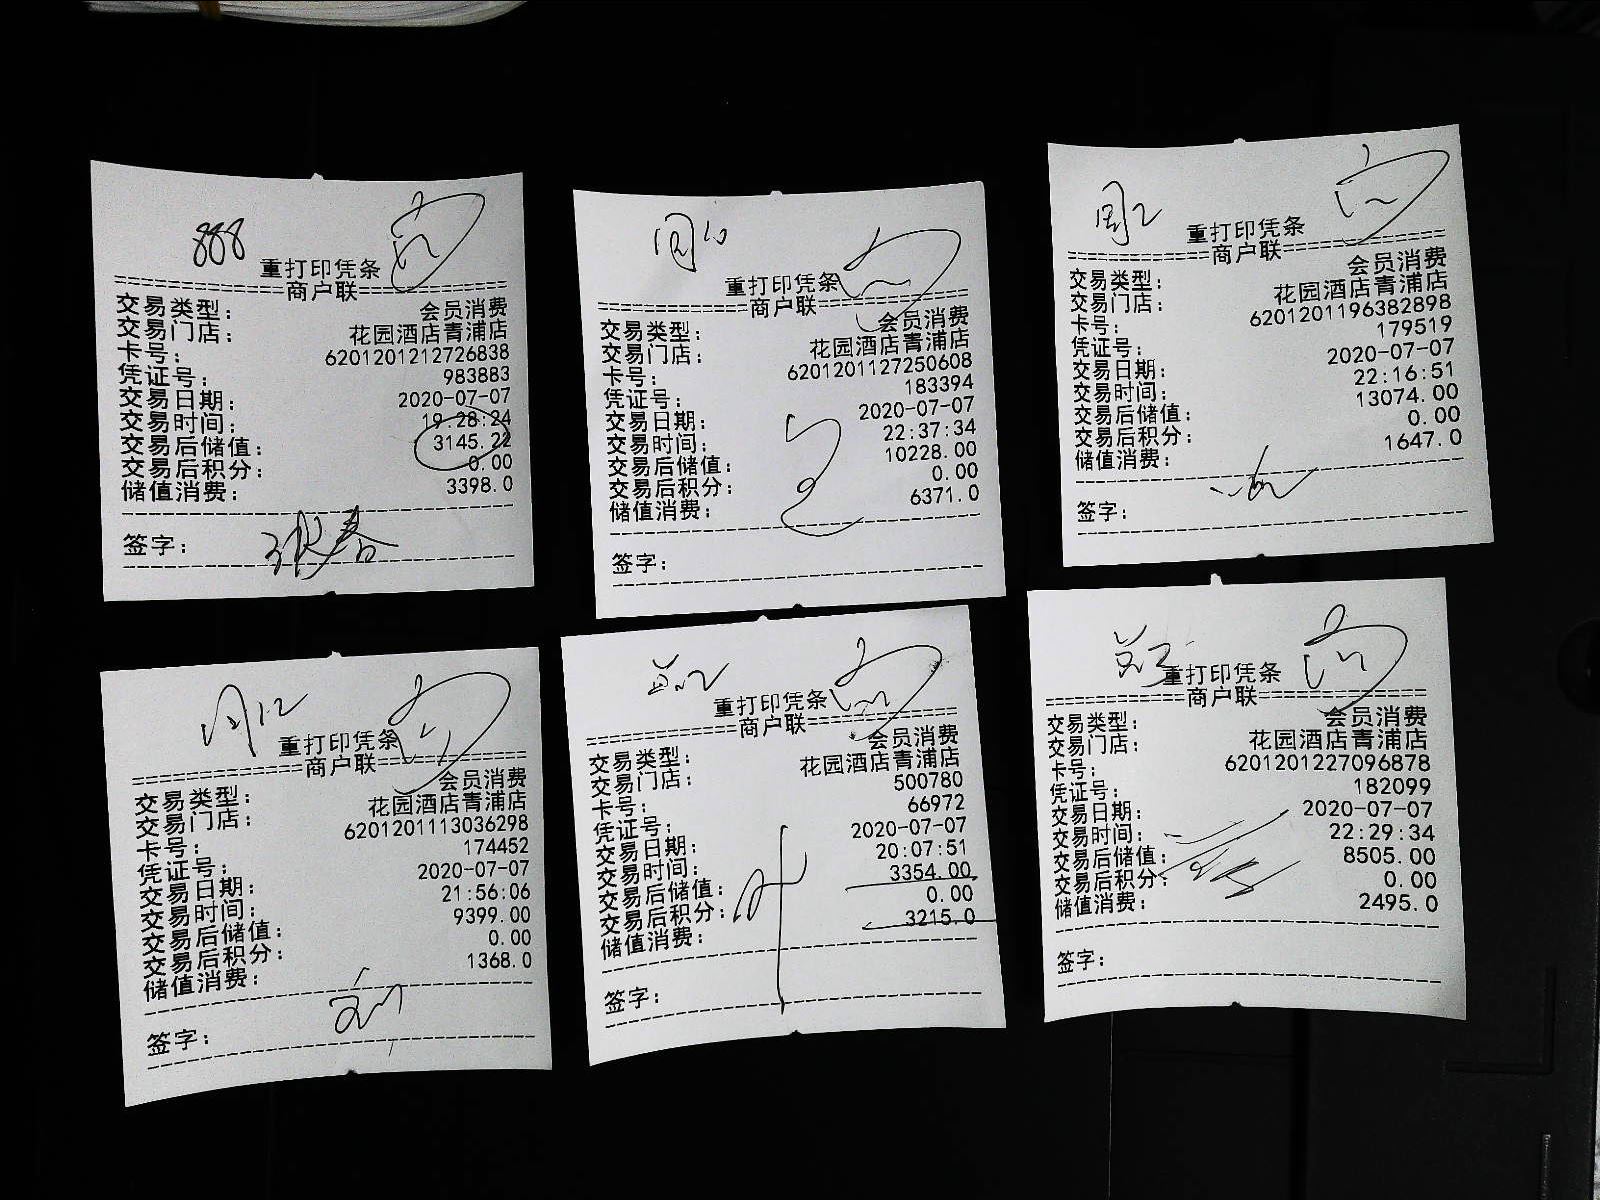 888
重打印凭条
商户联
交易类型: 会员消费
交易门店: 花园酒店青浦店
卡号: 6201201212726838
凭证号: 983883
交易日期: 2020-07-07
交易时间: 19:28:24
交易后储值: 3145.22
交易后积分: 0.00
储值消费: 3398.0
签字:
重打印凭条
商户联
交易类型: 会员消费
交易门店: 花园酒店青浦店
卡号: 6201201127250608
凭证号: 183394
交易日期: 2020-07-07
交易时间: 22:37:34
交易后储值: 10228.00
交易后积分: 0.00
储值消费: 6371.0
签字:
重打印凭条
商户联
交易类型: 会员消费
交易门店: 花园酒店青浦店
卡号: 6201201196382898
凭证号: 179519
交易日期: 2020-07-07
交易时间: 22:16:51
交易后储值: 13074.00
交易后积分: 0.00
储值消费: 1647.0
签字:
重打印凭条
商户联
交易类型: 会员消费
交易门店: 花园酒店青浦店
卡号: 6201201113036298
凭证号: 174452
交易日期: 2020-07-07
交易时间: 21:56:06
交易后储值: 9399.00
交易后积分: 0.00
储值消费: 1368.0
签字:
重打印凭条
商户联
交易类型: 会员消费
交易门店: 花园酒店青浦店
卡号: 500780
凭证号: 66972
交易日期: 2020-07-07
交易时间: 20:07:51
交易后储值: 3354.00
交易后积分: 0.00
储值消费: 3215.0
签字:
重打印凭条
商户联
交易类型: 会员消费
交易门店: 花园酒店青浦店
卡号: 6201201227096878
凭证号: 182099
交易日期: 2020-07-07
交易时间: 22:29:34
交易后储值: 8505.00
交易后积分: 0.00
储值消费: 2495.0
签字: